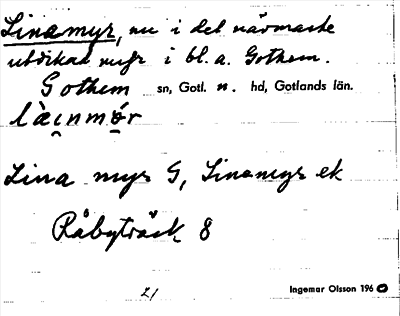 Linamyr, nu i det närmaste
utdikad myr i bl. a. Gothem.
Gothem sn, Gotl. n. hd, Gotlands län.
làinmỳr
Lina myr G, Linamyr ek
Råbyträsk 8
21
Ingemar Olsson 196